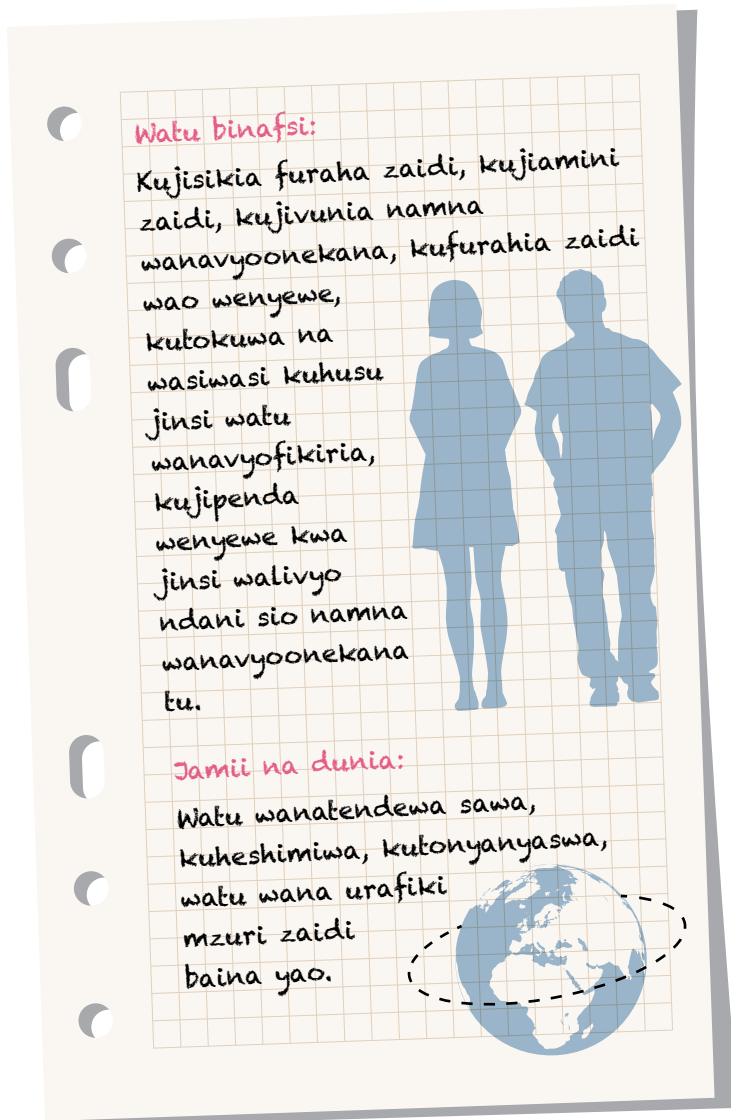 Watu binafsi:
Kujisikia furaha zaidi, kujiamini
zaidi, kujivunia namna
wanavyoonekana, kufurahia zaidi
wao wenyewe,
kutokuwa na
wasiwasi kuhusu
jinsi watu
wanavyofikiria,
kujipenda
wenyewe kwa
jinsi walivyo
ndani sio namna
wanavyoonekana
tu.
Jamii na dunia:
Watu wanatendewa sawa,
kuheshimiwa, kutonyanyaswa,
watu wana urafiki
mzuri zaidi
baina yao.